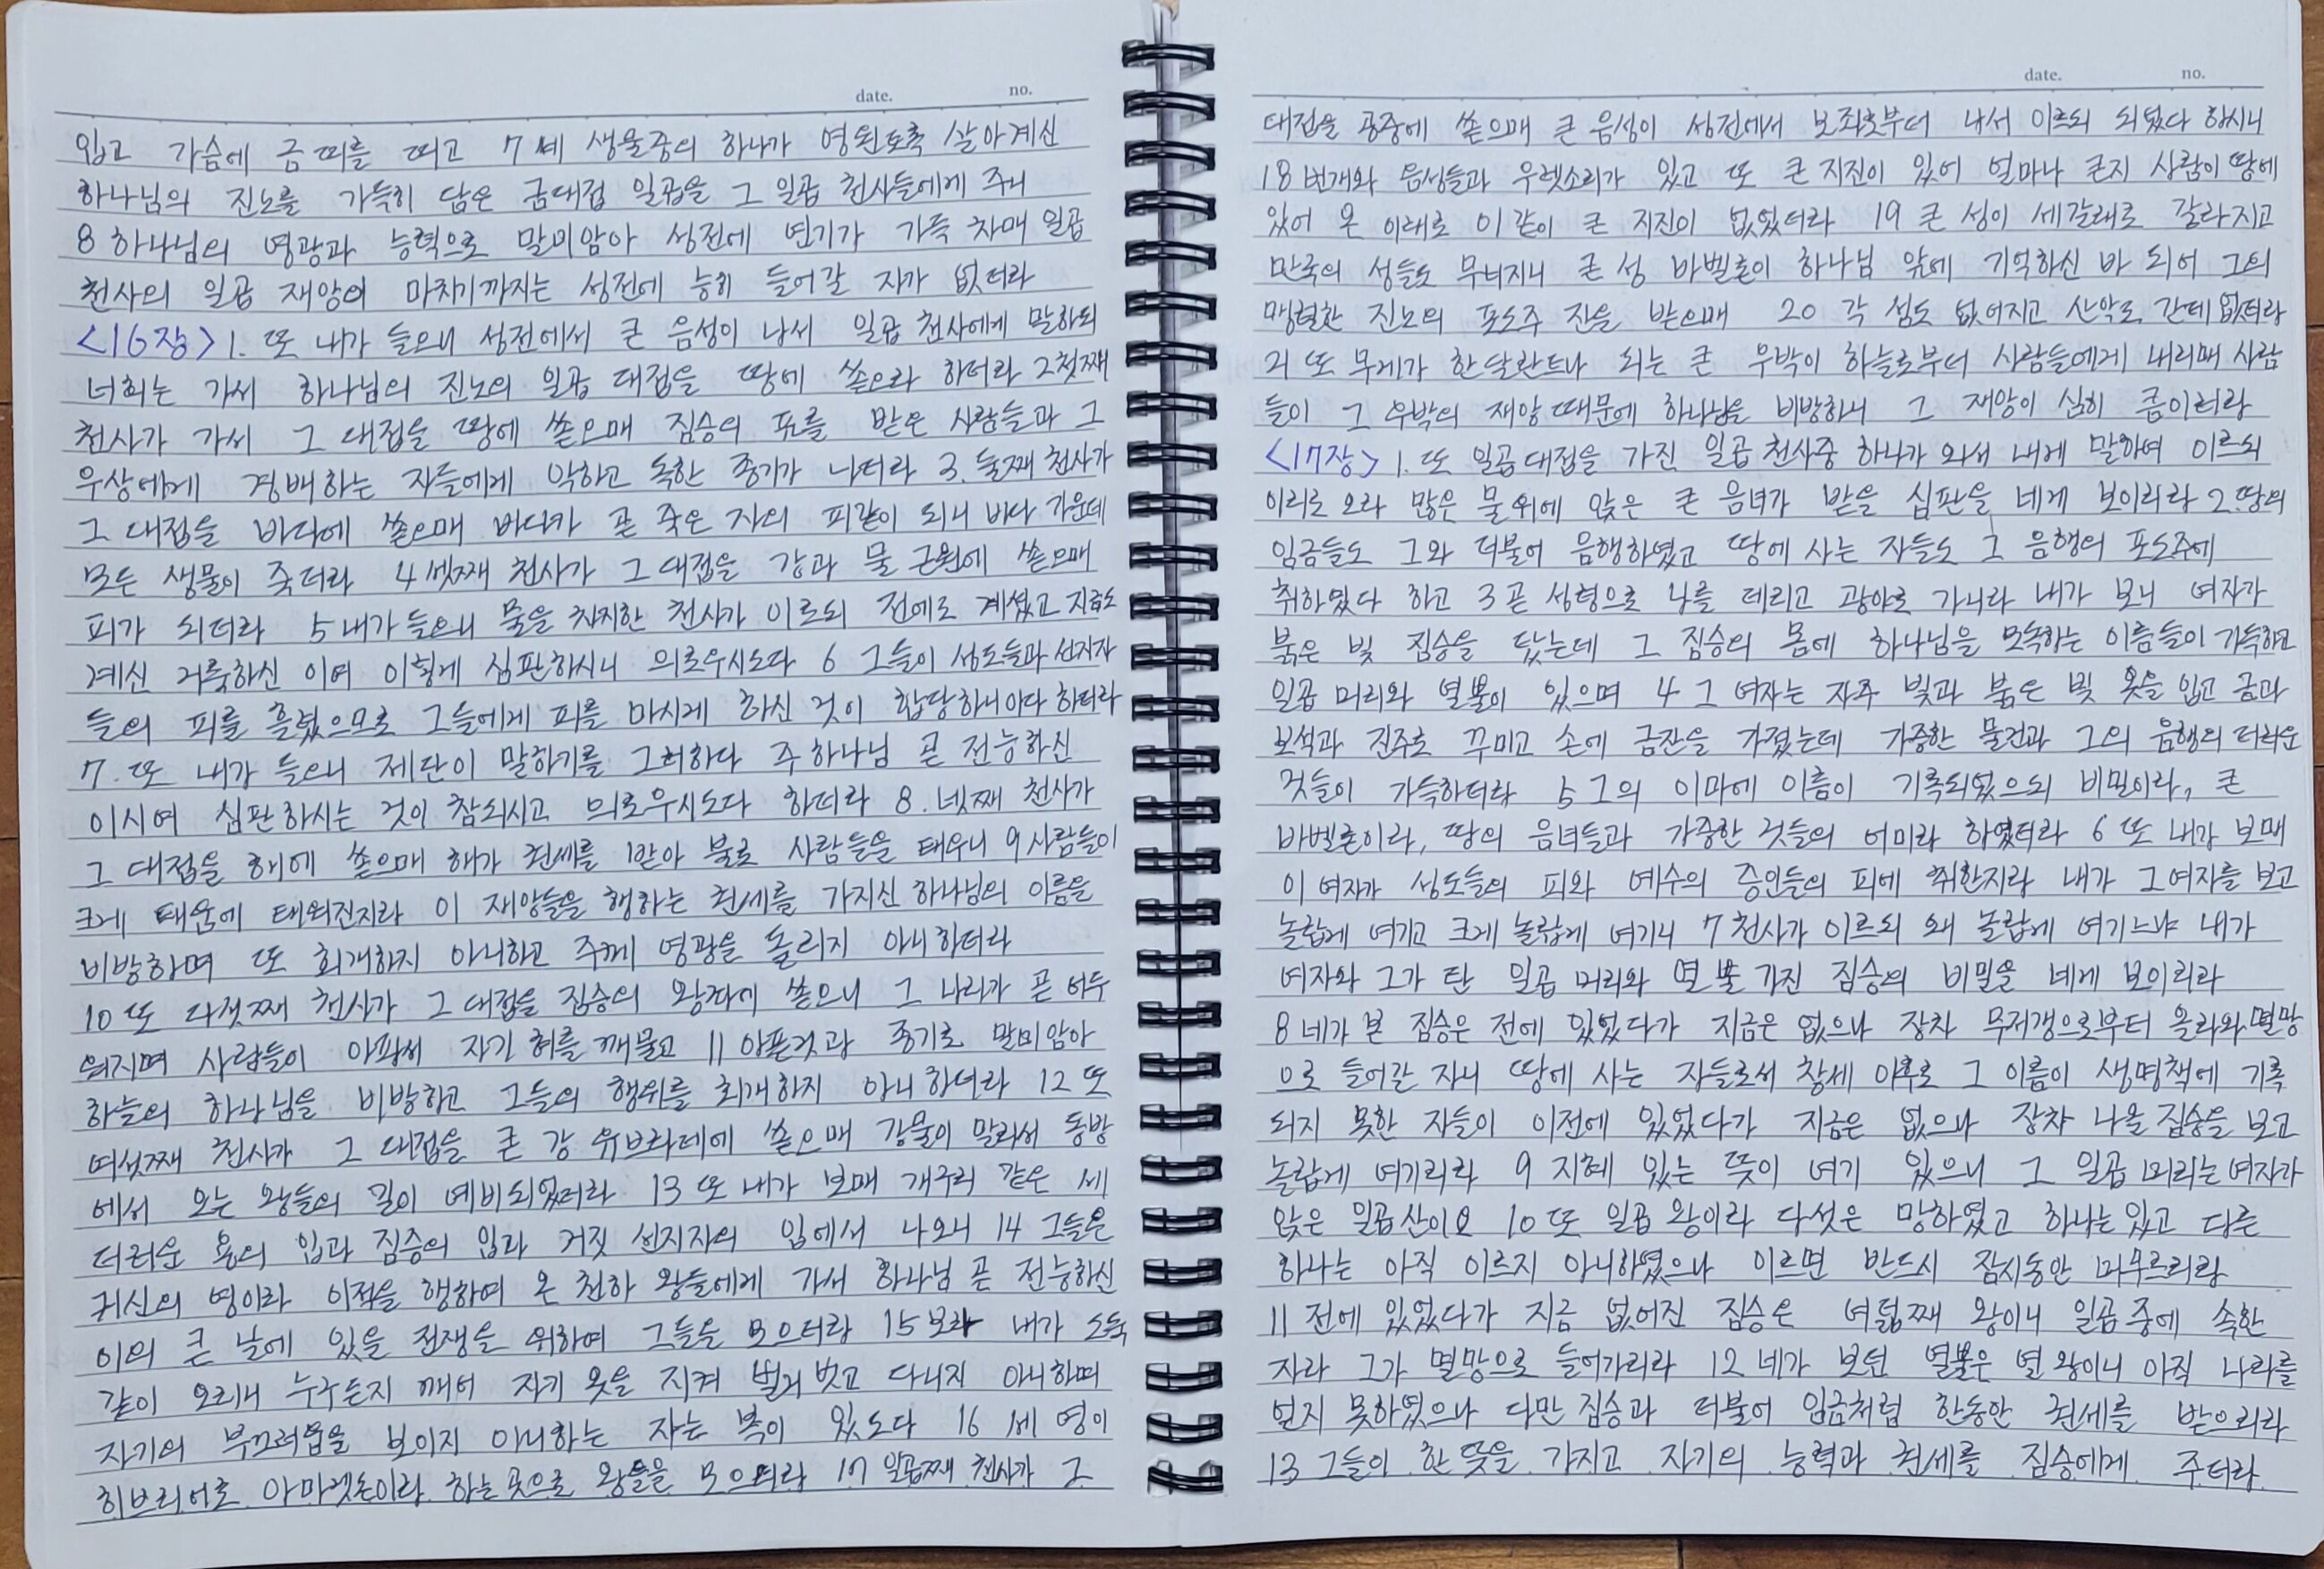 date. no.
입고 가슴에 금 띠를 띠고 7 네 생물중의 하나가 영원토록 살아계신
하나님의 진노를 가득히 담은 금대접 일곱을 그 일곱 천사들에게 주니
8 하나님의 영광과 능력으로 말미암아 성전에 연기가 가득 차매 일곱
천사의 일곱 재앙이 마치기까지는 성전에 능히 들어갈 자가 없더라
<16장> 1. 또 내가 들으니 성전에서 큰 음성이 나서 일곱 천사에게 말하되
너희는 가서 하나님의 진노의 일곱 대접을 땅에 쏟으라 하더라 2 첫째
천사가 가서 그 대접을 땅에 쏟으매 짐승의 표를 받은 사람들과 그
우상에게 경배하는 자들에게 악하고 독한 종기가 나더라 3. 둘째 천사가
그 대접을 바다에 쏟으매 바다가 곧 죽은 자의 피같이 되니 바다 가운데
모든 생물이 죽더라 4 셋째 천사가 그 대접을 강과 물 근원에 쏟으매
피가 되더라 5 내가 들으니 물을 차지한 천사가 이르되 전에도 계셨고 지금도
계신 거룩하신 이여 이렇게 심판하시니 의로우시도다 6 그들이 성도들과 선지자
들의 피를 흘렸으므로 그들에게 피를 마시게 하신 것이 합당하니이다 하더라
7. 또 내가 들으니 제단이 말하기를 그러하다 주 하나님 곧 전능하신
이시여 심판하시는 것이 참되시고 의로우시도다 하더라 8. 넷째 천사가
그 대접을 해에 쏟으매 해가 권세를 받아 불로 사람들을 태우니 9 사람들이
크게 태움에 태워진지라 이 재앙들을 행하는 권세를 가지신 하나님의 이름을
비방하며 또 회개하지 아니하고 주께 영광을 돌리지 아니하더라
10 또 다섯째 천사가 그 대접을 짐승의 왕좌에 쏟으니 그 나라가 곧 어두
워지며 사람들이 아파서 자기 혀를 깨물고 11 아픈것과 종기로 말미암아
하늘의 하나님을 비방하고 그들의 행위를 회개하지 아니하더라 12 또
여섯째 천사가 그 대접을 큰 강 유브라데에 쏟으매 강물이 말라서 동방
에서 오는 왕들의 길이 예비되었더라 13 또 내가 보매 개구리 같은 세
더러운 용의 입과 짐승의 입과 거짓 선지자의 입에서 나오니 14 그들은
귀신의 영이라 이적을 행하여 온 천하 왕들에게 가서 하나님 곧 전능하신
이의 큰 날에 있을 전쟁을 위하여 그들을 모으더라 15 보라 내가 도둑
같이 오리니 누구든지 깨어 자기 옷을 지켜 벌거 벗고 다니지 아니하며
자기의 부끄러움을 보이지 아니하는 자는 복이 있도다 16 세 영이
히브리어로 아마겟돈이라 하는 곳으로 왕들을 모으더라 17 일곱째 천사가 그
date. no.
대접을 공중에 쏟으매 큰 음성이 성전에서 보좌로부터 나서 이르되 되었다 하시니
18 번개와 음성들과 우렛소리가 있고 또 큰 지진이 있어 얼마나 큰지 사람이 땅에
있어 온 이래로 이같이 큰 지진이 없었더라 19 큰 성이 세갈래로 갈라지고
만국의 성들도 무너지니 큰 성 바벨론이 하나님 앞에 기억하신 바 되어 그의
맹렬한 진노의 포도주 잔을 받으매 20 각 섬도 없어지고 산악도 간데 없더라
21 또 무게가 한달란트나 되는 큰 우박이 하늘로부터 사람들에게 내리매 사람
들이 그 우박의 재앙 때문에 하나님을 비방하니 그 재앙이 심히 큼이러라
<17장> 1. 또 일곱대접을 가진 일곱 천사중 하나가 와서 내게 말하여 이르되
이리로 오라 많은 물위에 앉은 큰 음녀가 받을 심판을 네게 보이리라 2 땅의
임금들도 그와 더불어 음행하였고 땅에 사는 자들도 그 음행의 포도주에
취하였다 하고 3 곧 성령으로 나를 데리고 광야로 가니라 내가 보니 여자가
붉은 빛 짐승을 탔는데 그 짐승의 몸에 하나님을 모독하는 이름들이 가득하고
일곱 머리와 열뿔이 있으며 4 그 여자는 자주 빛과 붉은 빛 옷을 입고 금과
보석과 진주로 꾸미고 손에 금잔을 가졌는데 가증한 물건과 그의 음행의 더러운
것들이 가득하더라 5 그의 이마에 이름이 기록되었으되 비밀이라, 큰
바벨론이라, 땅의 음녀들과 가증한 것들의 어미라 하였더라 6 또 내가 보매
이 여자가 성도들의 피와 예수의 증인들의 피에 취한지라 내가 그여자를 보고
놀랍게 여기고 크게 놀랍게 여기니 7 천사가 이르되 왜 놀랍게 여기느냐 내가
여자와 그가 탄 일곱 머리와 열 뿔 가진 짐승의 비밀을 네게 보이리라
8 네가 본 짐승은 전에 있었다가 지금은 없으나 장차 무저갱으로부터 올라와 멸망
으로 들어갈 자니 땅에 사는 자들로서 창세 이후로 그 이름이 생명책에 기록
되지 못한 자들이 이전에 있었다가 지금은 없으나 장차 나올 짐승을 보고
놀랍게 여기리라 9 지혜 있는 뜻이 여기 있으니 그 일곱 머리는 여자가
앉은 일곱산이요 10 또 일곱 왕이라 다섯은 망하였고 하나는 있고 다른
하나는 아직 이르지 아니하였으나 이르면 반드시 잠시동안 머무르리라
11 전에 있었다가 지금 없어진 짐승은 여덟째 왕이니 일곱 중에 속한
자라 그가 멸망으로 들어가리라 12 네가 보던 열뿔은 열 왕이니 아직 나라를
얻지 못하였으나 다만 짐승과 더불어 임금처럼 한동안 권세를 받으리라
13 그들이 한 뜻을 가지고 자기의 능력과 권세를 짐승에게 주더라